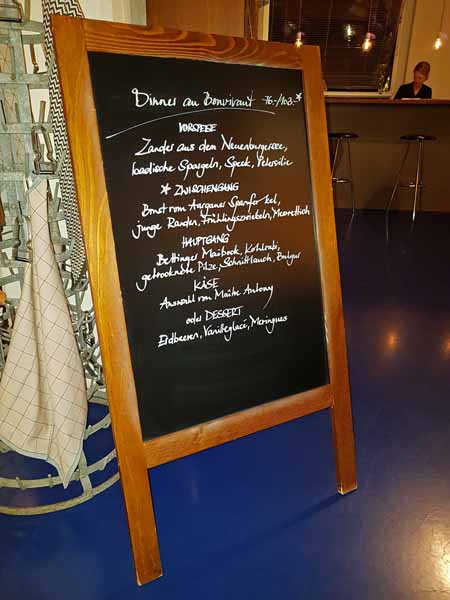 Dinner au Bonvivant 76.-/103.-*
VORSPEISE
Zander aus dem Neuenburgersee,
badische Spargeln, Speck, Petersilie
* ZWISCHENGANG
Brust vom Aargauer Spanferkel,
junge Randen, Frühlingszwiebeln, Meerrettich
HAUPTGANG
Bettinger Maibock, Kohlrabi,
getrocknete Pilze, Schnittlauch, Bulgur
KÄSE
Auswahl von Maître Antony
oder DESSERT
Erdbeeren, Vanilleglacé, Meringues